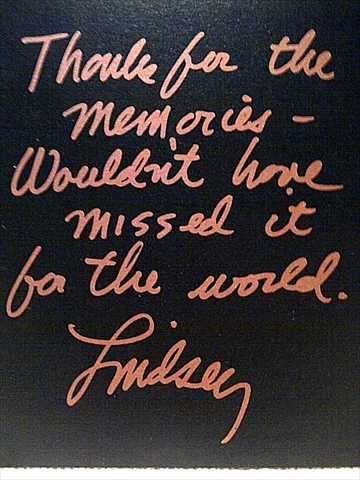 Thanks for the
memories -
Wouldn't have
missed it
for the world.
Lindsey